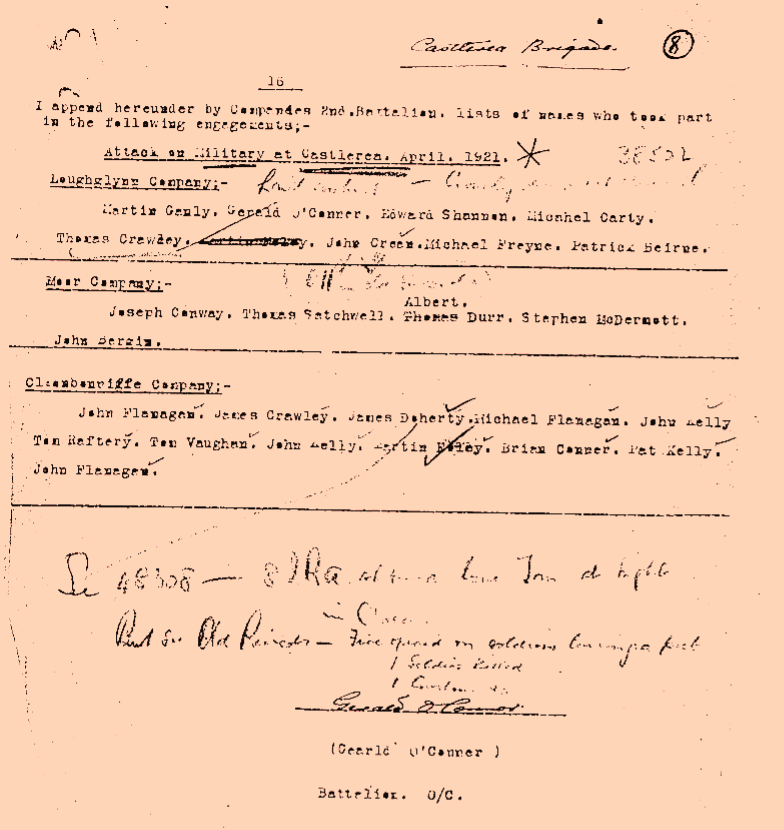 Castlerea Brigade. 8
16
I append hereunder by Companies 2nd.Battalion. lists of names who took part
in the following engagements;-
Attack on Military at Castlerea. April. 1921. * 38522
Loughglynn Company;-
Martin Ganly. Gerald O'Conner. Edward Shannon. Micahel Carty.
Thomas Crawley. John Crean.Michael Freyne. Patrick Beirne.
Moor Company;-
Albert.
Joseph Conway. Thomas Satchwell. Thomas Durr. Stephen McDermott.
John Bergin.
Cloonboniffe Company;-
John Flanagan. James Crawley. James Doherty.Michael Flanagan. John Kelly
Tom Raftery. Tom Vaughan. John Kelly. Martin Brian Conner. Pat Kelly.
John Flanagan.
8 IRA
in
But see Old Records - Fire opened on soldiers leaving a
1 Soldier Killed
1
Gerald O'Connor
(Gearld O'Conner )
Battalion. O/C.